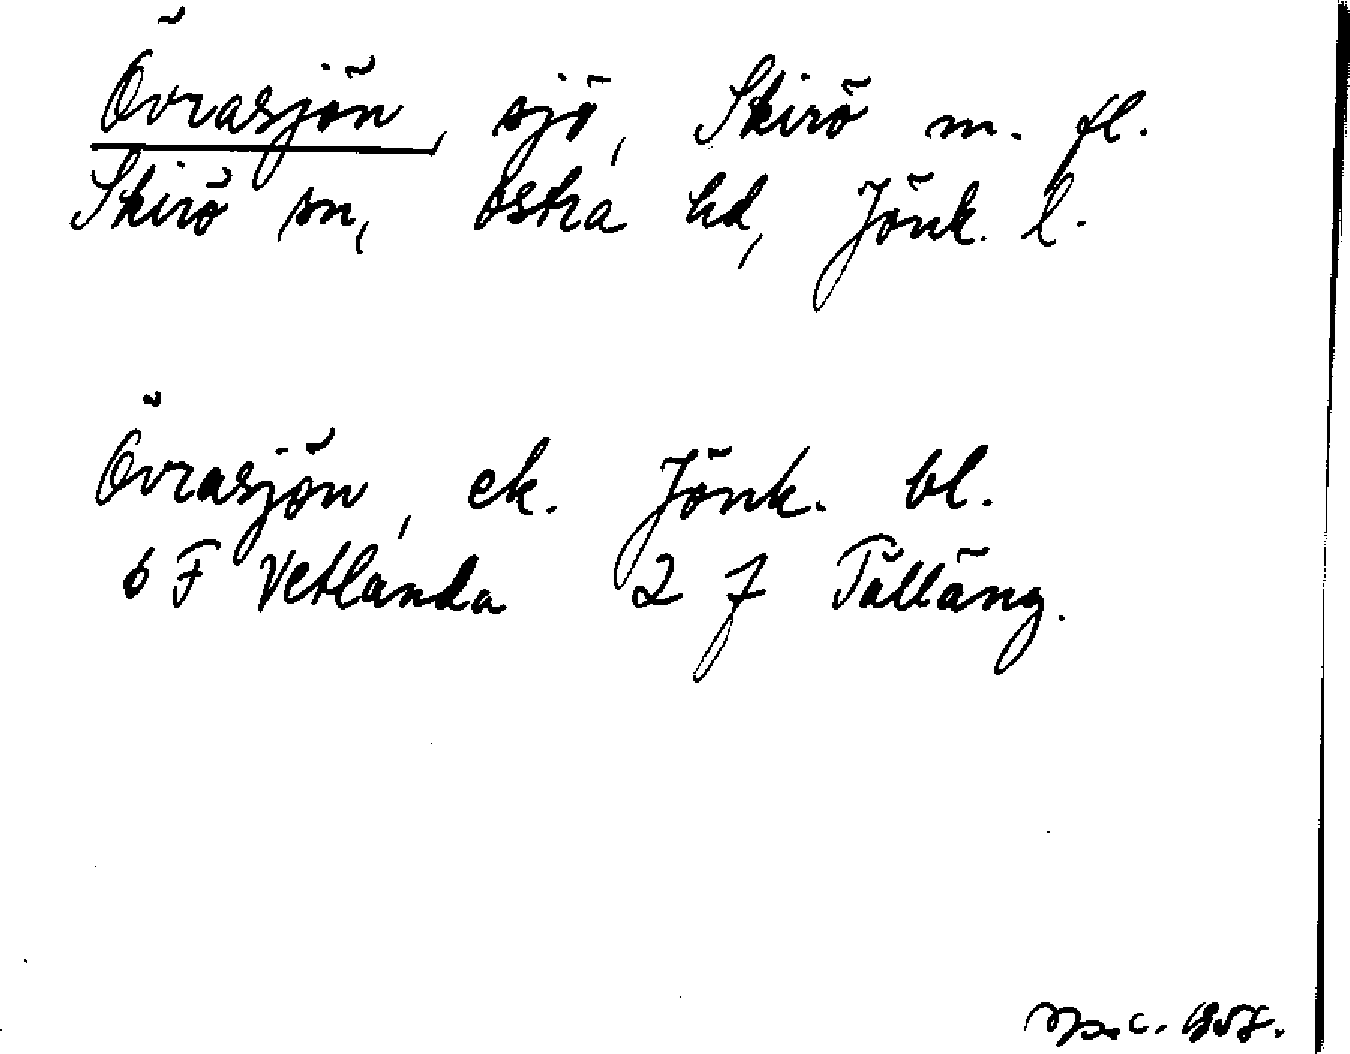 Övrasjön, sjö, Skirö m. fl.
Skirö sn, östra hd, Jönk. l.
Övrasjön, ek. Jönk. bl.
6 F Vetlanda 2 f Tälläng.